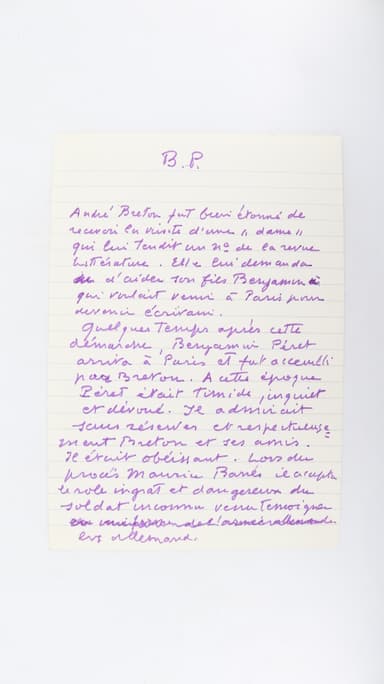 B.P.
André Breton fut bien étonné de
recevoir la visite d'une "dame"
qui lui tendit un nº de la revue
Littérature. Elle lui demanda
d'aider son fils Benjamin
qui voulait venir à Paris pour
devenir écrivain.
Quelques temps après cette
démarche, Benjamin Péret
arriva à Paris et fut accueilli
par Breton. A cette époque
Péret était timide, inquiet
et dévoué. Il admirait
sans réserves et respectueuse
ment Breton et ses amis.
Il était obéissant. Lors du
procès Maurice Barrès il accepta
le role ingrat et dangereux du
soldat inconnu venu temoigner
en uniforme de l'armée allemande
en allemand.